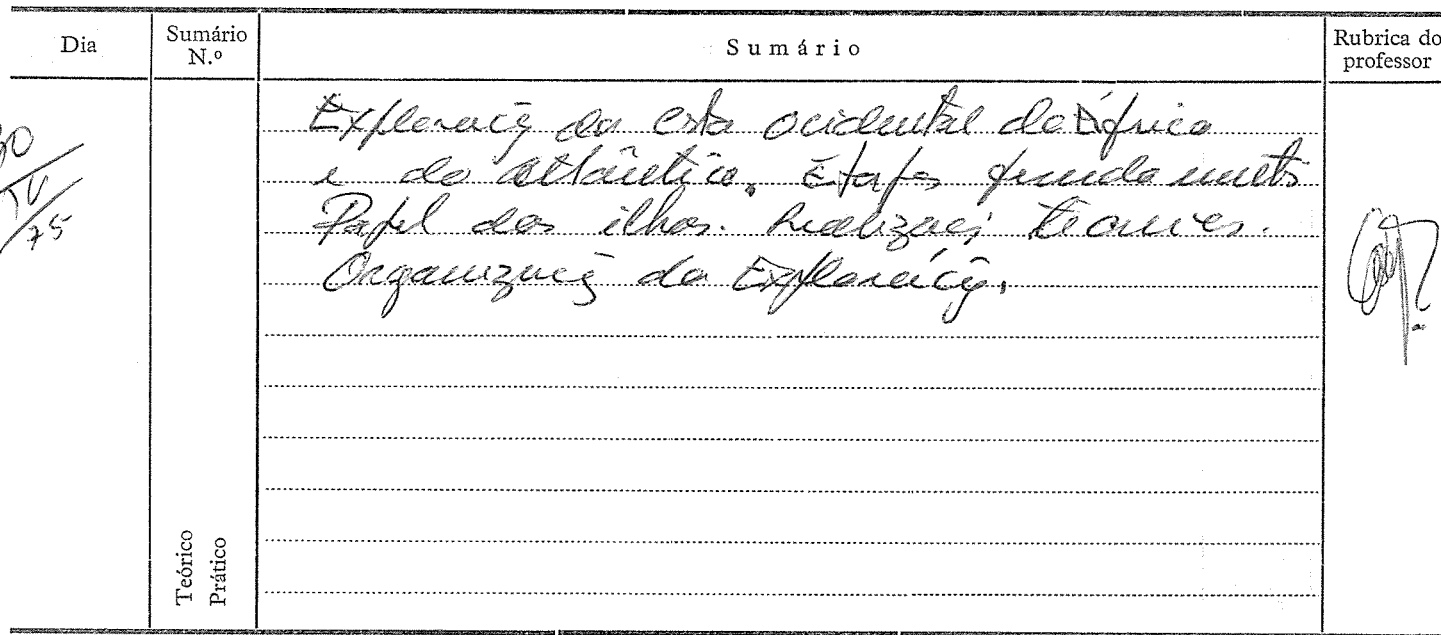 Dia
Sumário N.º
Sumário
Rubrica do professor
30/IV/75
Exploração da costa ocidental de África
e do Atlântico. Etapas fundamentais
Papel das ilhas. Realizações técnicas.
Organização da Exploração.
Teórico
Prático